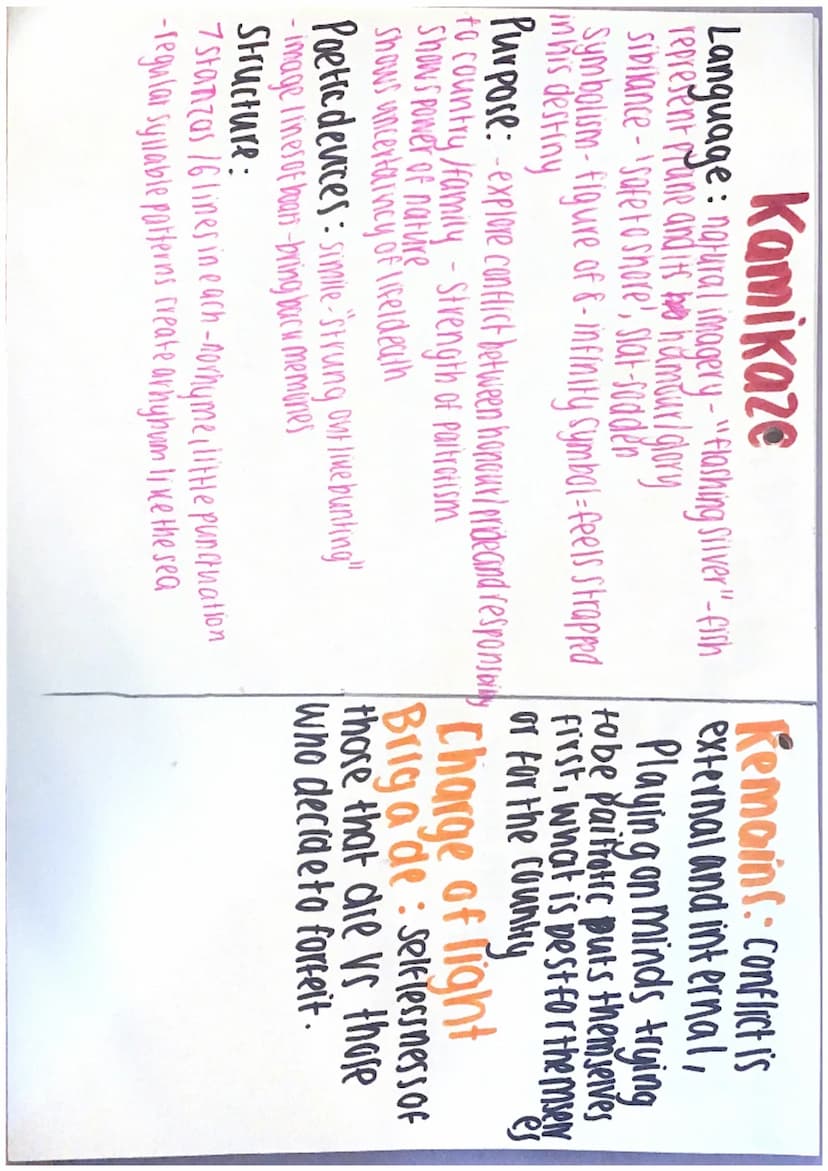 Kamikaze
Language: natural imagery - "flashing silver" - fish
represent plane and its honour/glory
siblance - 'safe to shore', slat-sodden
Symbolim - figure of 8 - infinity symbol = feels strapped
in his destiny
Purpose: - explore conflict between honour/pride and responsibility
to country/family - strength of patroism
shows power of nature
shows uncertaincy of life/death
Poetic devices: simile - "strung out like bunting"
- image lines of boat - bring back memries
Structure:
7 stanzas / 6 lines in each - no rhyme, little punctuation
- regular syllable patterns create a rhyhum like the sea
Remains: conflict is
external and internal,
Playing on minds trying
to be paitrotic puts themselves
first, what is best for themselves
or for the country
Charge of light
Brigade: selflessness of
those that die vs those
who decide to forfeit.